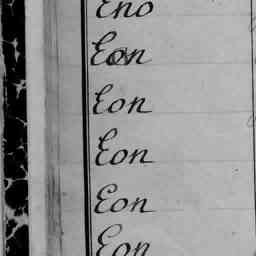 Eno
Eon
Eon
Eon
Eon
Eon